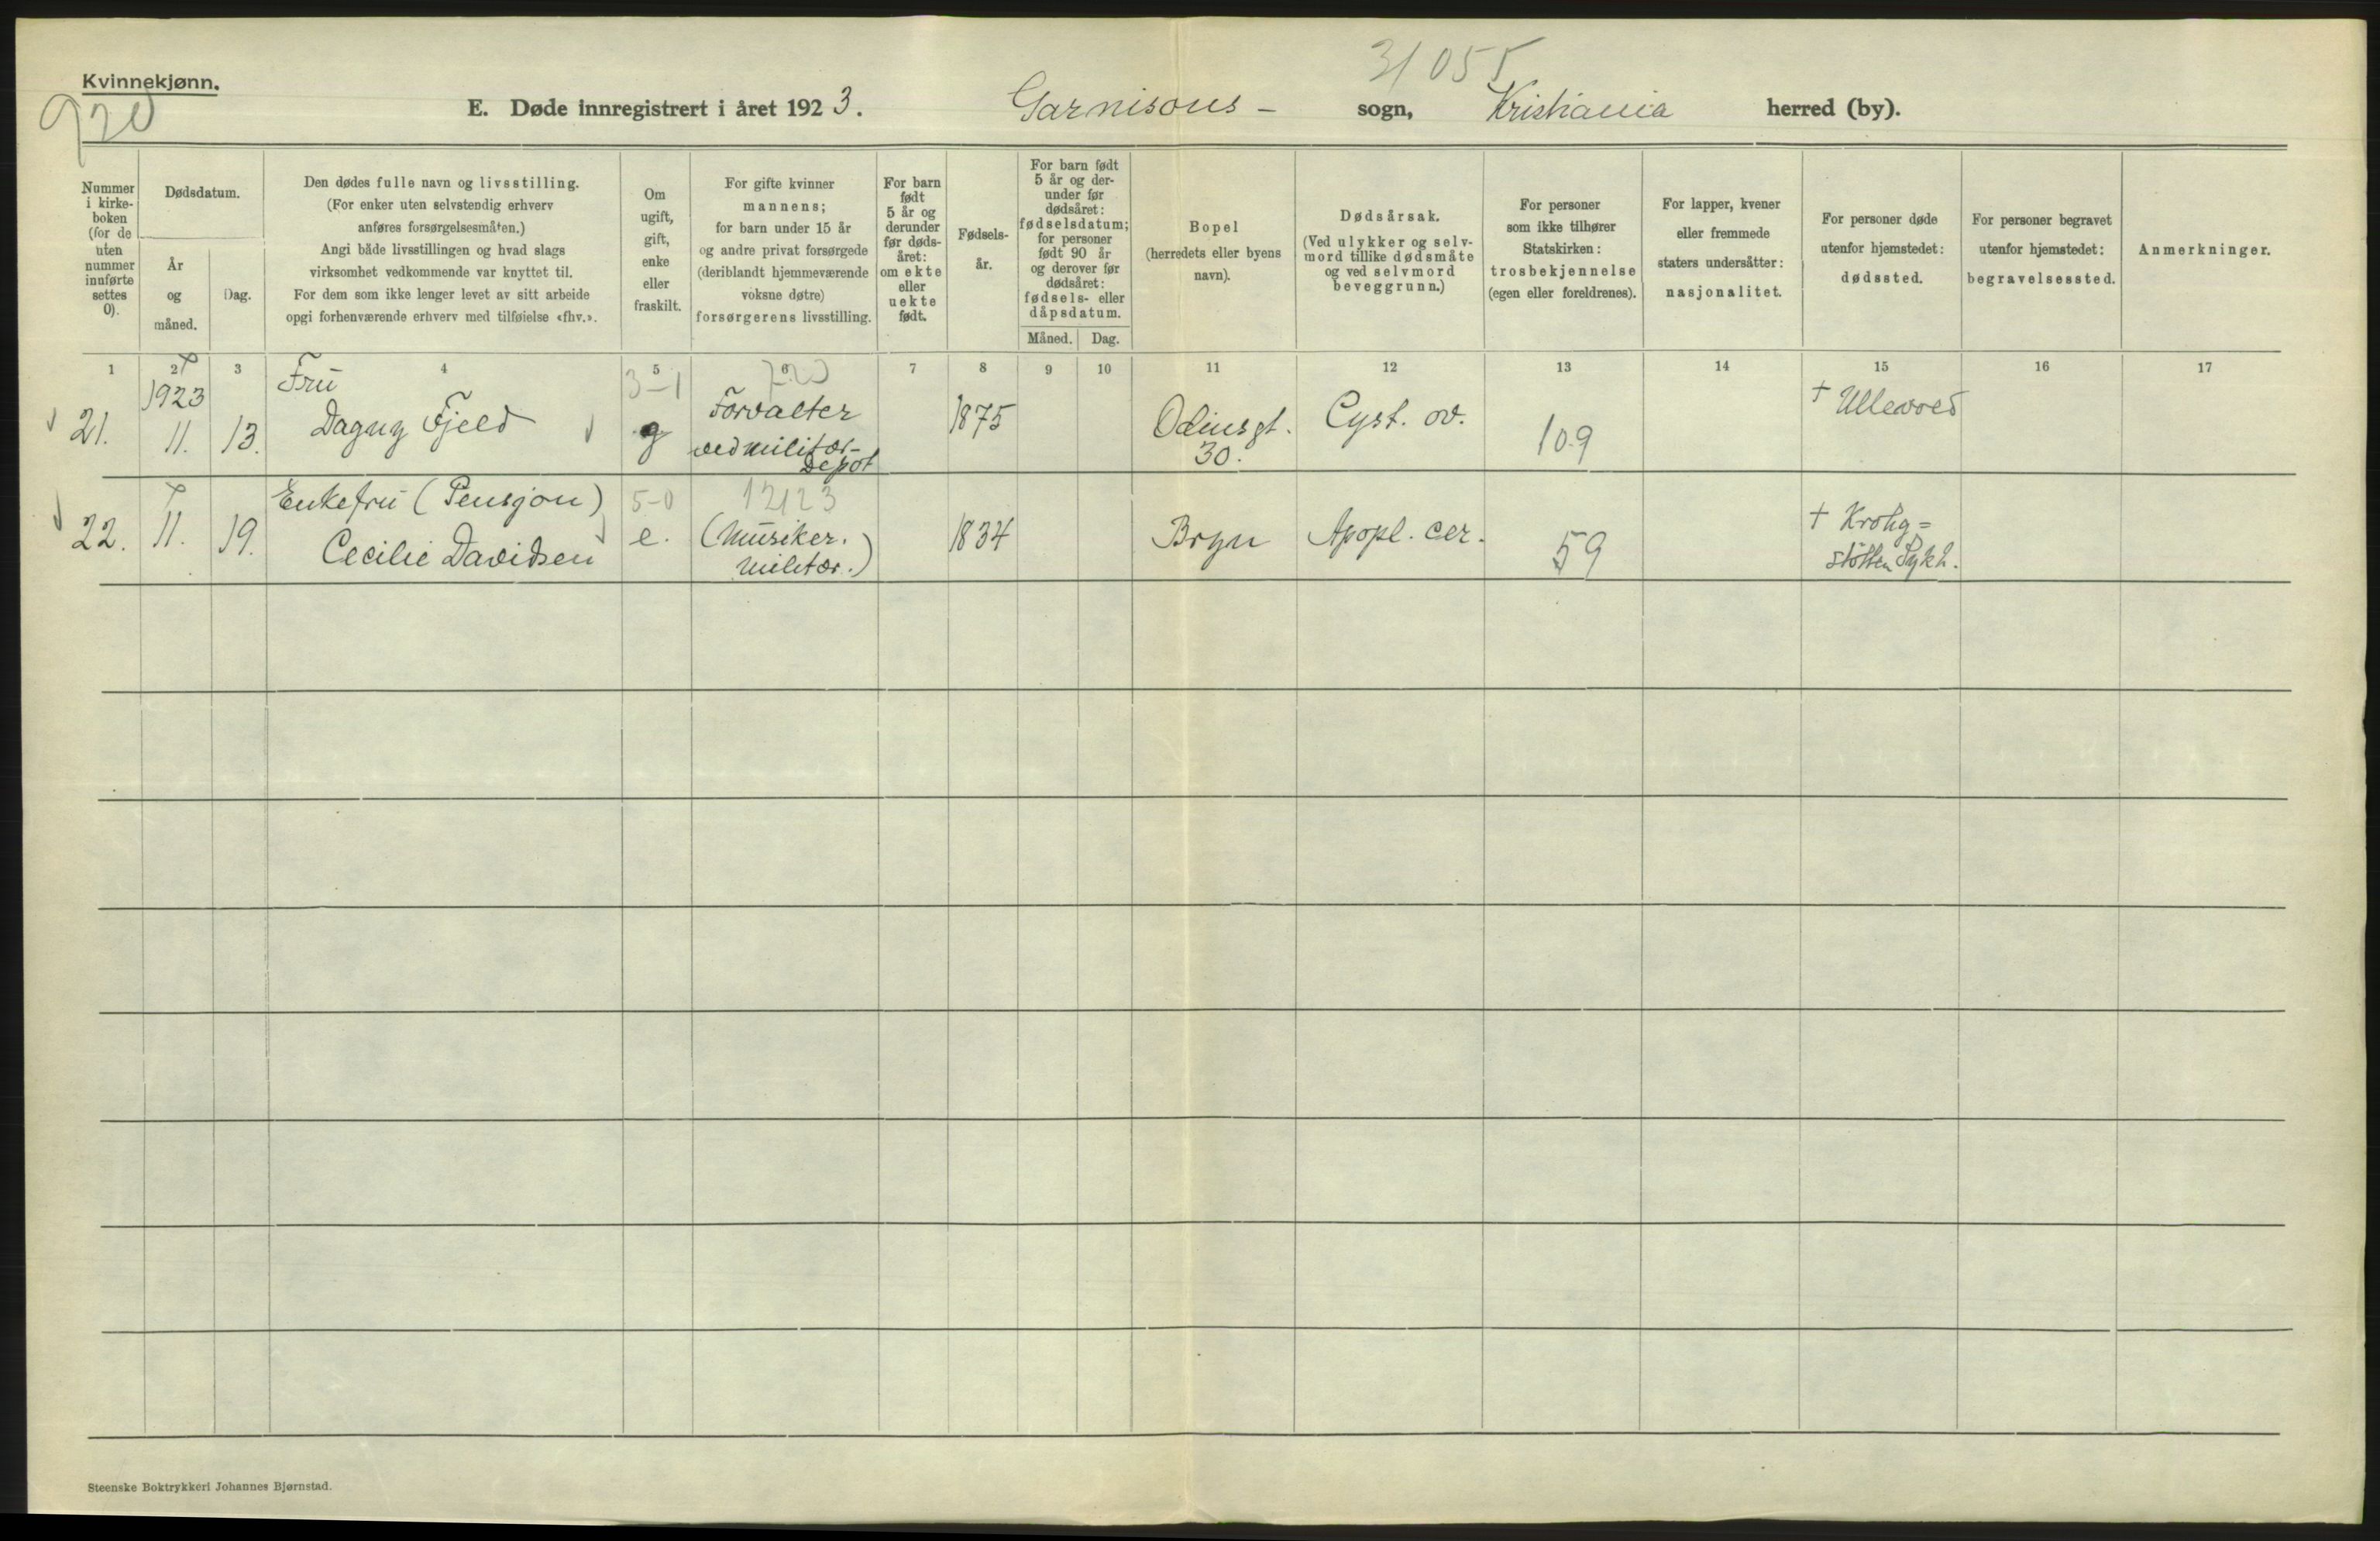 Kvinnekjønn.
920
31055
E. Døde innregistrert i året 1923. Garnisons- sogn, Kristiania herred (by).
Nummer i kirke- boken (for de uten nummer innførte settes 0).
Dødsdatum.
År og måned.
Dag.
Den dødes fulle navn og livsstilling.
(For enker uten selvstendig erhverv
anføres forsørgelsesmåten.)
Angi både livsstillingen og hvad slags
virksomhet vedkommende var knyttet til.
For dem som ikke lenger levet av sitt arbeide
opgi forhenværende erhverv med tilføielse «fhv.».
Om ugift, gift, enke eller fraskilt.
For gifte kvinner
mannens;
for barn under 15 år
og andre privat forsørgede
(deriblandt hjemmeværende
voksne døtre)
forsørgerens livsstilling.
For barn født 5 år og derunder før døds- året: om ekte eller uekte født.
Fødsels- år.
For barn født 5 år og der- under før dødsåret: fødselsdatum; for personer født 90 år og derover før dødsåret: fødsels- eller dåpsdatum.
Måned. Dag.
Bopel
(herredets eller byens
navn).
Dødsårsak.
(Ved ulykker og selv-
mord tillike dødsmåte
og ved selvmord
beveggrunn.)
For personer
som ikke tilhører
Statskirken:
trosbekjennelse
(egen eller foreldrenes).
For lapper, kvener
eller fremmede
staters undersåtter:
nasjonalitet.
For personer døde
utenfor hjemstedet:
dødssted.
For personer begravet
utenfor hjemstedet:
begravelsessted.
Anmerkninger.
1 2 3 4 5 6 7 8 9 10 11 12 13 14 15 16 17
1923 Fru 3-1
21. 11. 13. Dagny Fjeld g Forvalter ved militær- Depot 1875 Odinsgt. 30. Cyst. ov. 109 + Ullevold
Enkefru (Pensjon) 5-0 12123
22. 11. 19. Cecilie Davidsen e. (Musiker. Militær.) 1834 Bryn Apopl. cer. 59 + Krohg= støtten Sykh.
Steenske Boktrykkeri Johannes Bjørnstad.